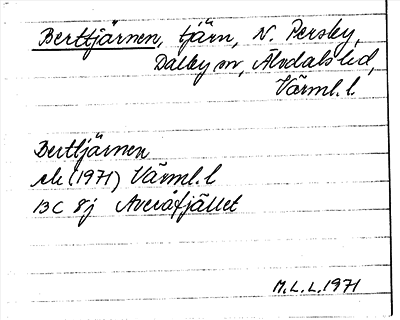 Berttjärnen, tjärn, N. Persby,
Dalby sn, Älvdals hd,
Värml. l.
Berttjärnen
ek (1971) Värml. l
13C 8j Averåfjället
M.L.L. 1971